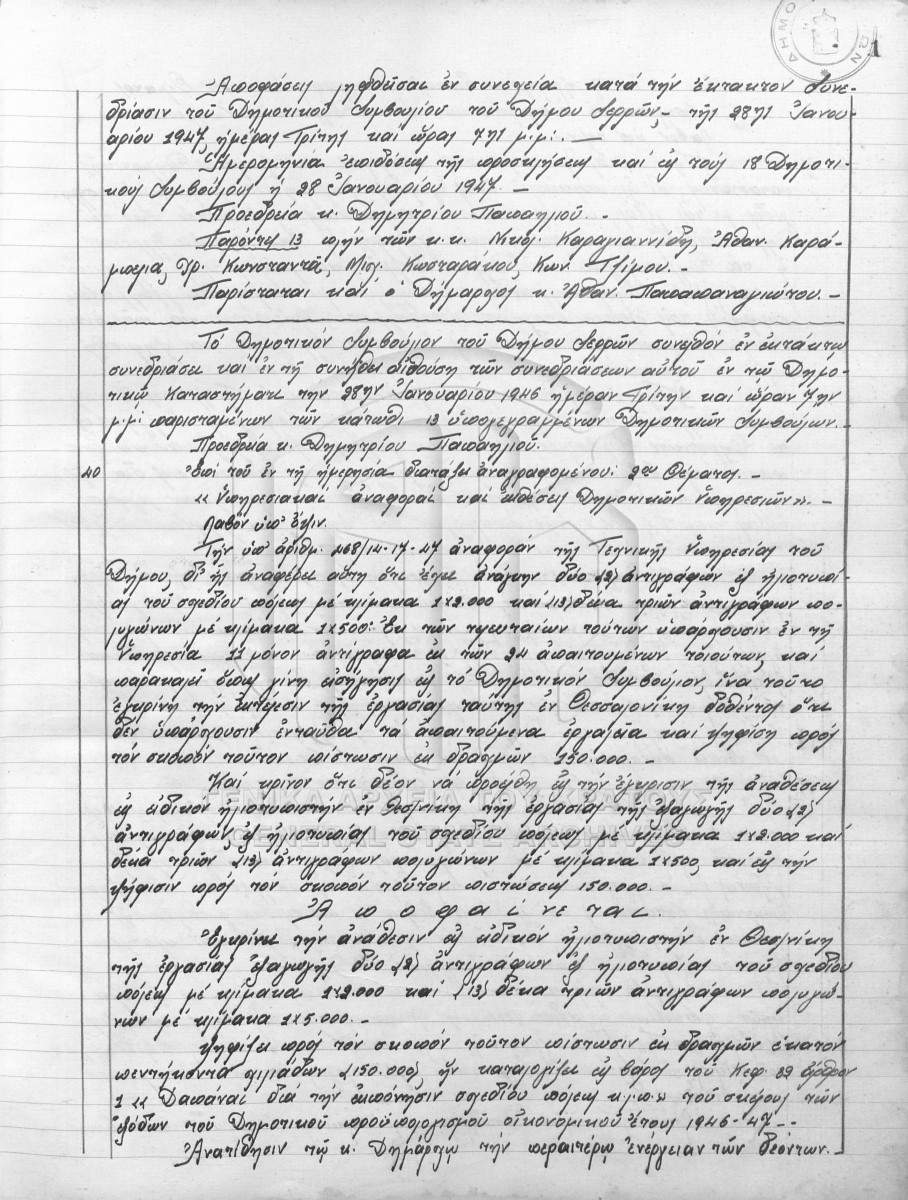 ΔΗΜΟ ΩΝ
1
Ἀποφάσεις ληφθεῖσαι ἐν συνεχεία κατά τήν ἔκτακτον Συνε-
δρίασιν τοῦ Δημοτικοῦ Συμβουλίου τοῦ Δήμου Σερρῶν, τῆς 28ης Ἰανου-
αρίου 1947, ἡμέρας Τρίτης καί ὥρας 7ης μ.μ. —
Ἡμερομηνία ἐπιδόσεως τῆς προσκλήσεως καί εἰς τούς 18 Δημοτι-
κούς Συμβούλους ἡ 28 Ἰανουαρίου 1947. –
Προεδρεία κ. Δημητρίου Παπαηλιοῦ. –
Παρόντες 13 πλήν τῶν κ.κ. Νικολ. Καραγιαννίδη, Ἀθαν. Καρά-
μπελια, Γρ. Κωνσταντᾶ, Μιχ. Κωσταράκου, Κων. Τζίμου. –
Παρίσταται καί ὁ Δήμαρχος κ. Ἀθαν. Παπαπαναγιώτου. –
Τό Δημοτικόν Συμβούλιον τοῦ Δήμου Σερρῶν συνελθόν ἐν ἐκτάκτω
συνεδριάσει καί ἐν τῆ συνήθει αἰθούση τῶν συνεδριάσεων αὐτοῦ ἐν τῶ Δημο-
τικῶ Καταστήματι την 28ην Ἰανουαρίου 1946 ἡμέραν Τρίτην καί ὥραν 7ην
μ.μ. παρισταμένων τῶν κάτωθι 13 ὑπογεγραμμένων Δημοτικῶν Συμβούλων. –
Προεδρεία κ. Δημητρίου Παπαηλιοῦ.
40 Ἐπί τοῦ ἐν τῆ ἡμερησία διατάξει ἀναγραφομένου: 2ου Θέματος. –
« Ὑπηρεσιακαί ἀναφοραί καί ἐκθέσεις Δημοτικῶν Ὑπηρεσιῶν ». –
Λαβόν ὑπ' ὄψιν.
Τήν ὑπ' ἀριθμ. 468/14-17-47 ἀναφοράν τῆς Τεχνικῆς Ὑπηρεσίας τοῦ
Δήμου, δι' ἧς ἀναφέρει αὕτη ὅτι ἔχει ἀνάγκην δύο (2) ἀντιγράφων ἐξ ἡλιοτυπί-
ας τοῦ σχεδίου πόλεως μέ κλίμακα 1x2.000 καί (13) δέκα τριῶν ἀντιγράφων πο-
λυγώνων μέ κλίμακα 1x500: Ἐκ τῶν τελευταίων τούτων ὑπάρχουσιν ἐν τῆ
Ὑπηρεσία 11 μόνον ἀντίγραφα ἐκ τῶν 24 ἀπαιτουμένων τοιούτων, καί
παρακαλεῖ ὅπως γίνη εἰσήγησις εἰς τό Δημοτικόν Συμβούλιον, ἵνα τοῦτο
ἐγκρίνη τήν ἐκτέλεσιν τῆς ἐργασίας ταύτης ἐν Θεσσαλονίκη δοθέντος ὅτι
δέν ὑπάρχουσιν ἐνταῦθα τά ἀπαιτούμενα ἐργαλεῖα καί ψηφίση πρός
τόν σκοπόν τοῦτον πίστωσιν ἐκ δραχμῶν 150.000. –
Καί κρῖνον ὅτι δέον νά προέλθη εἰς τήν ἔγκρισιν τῆς ἀναθέσεως
εἰς εἰδικόν ἡλιοτυπιστήν ἐν Θεσ/νίκη τῆς ἐργασίας τῆς ἐξαγωγῆς δύο (2)
ἀντιγράφων ἐξ ἡλιοτυπίας τοῦ σχεδίου πόλεως μέ κλίμακα 1x2.000 καί
δέκα τριῶν (13) ἀντιγράφων πολυγώνων μέ κλίμακα 1x500, καί εἰς τήν
ψήφισιν πρός τόν σκοπόν τοῦτον πιστώσεως 150.000. –
Ἀποφαίνεται.
Ἐγκρίνει τήν ἀνάθεσιν εἰς εἰδικόν ἡλιοτυπιστήν ἐν Θεσ/νίκη
τῆς ἐργασίας ἐξαγωγῆς δύο (2) ἀντιγράφων ἐξ ἡλιοτυπίας τοῦ σχεδίου
πόλεως μέ κλίμακα 1x2.000 καί (13) δέκα τριῶν ἀντιγράφων πολυγώ-
νων μέ κλίμακα 1x5.000. –
Ψηφίζει πρός τόν σκοπόν τοῦτον πίστωσιν ἐκ δραχμῶν ἑκατόν
πεντήκοντα χιλιάδων (150.000), ἥν καταλογίζει εἰς βάρος τοῦ Κεφ. 32 ἄρθρον
1 « Δαπάναι διά τήν ἐκπόνησιν σχεδίου πόλεως κ.λ.π.» τοῦ σκέλους τῶν
ἐξόδων τοῦ Δημοτικοῦ προϋπολογισμοῦ οἰκονομικοῦ ἔτους 1946-47. –
Ἀνατίθησιν τῶ κ. Δημάρχω τήν περαιτέρω ἐνέργειαν τῶν δεόντων. –
ΓΕΝΙΚΑ ΑΡΧΕΙΑ ΤΟΥ ΚΡΑΤΟΥΣ
GENERAL STATE ARCHIVES